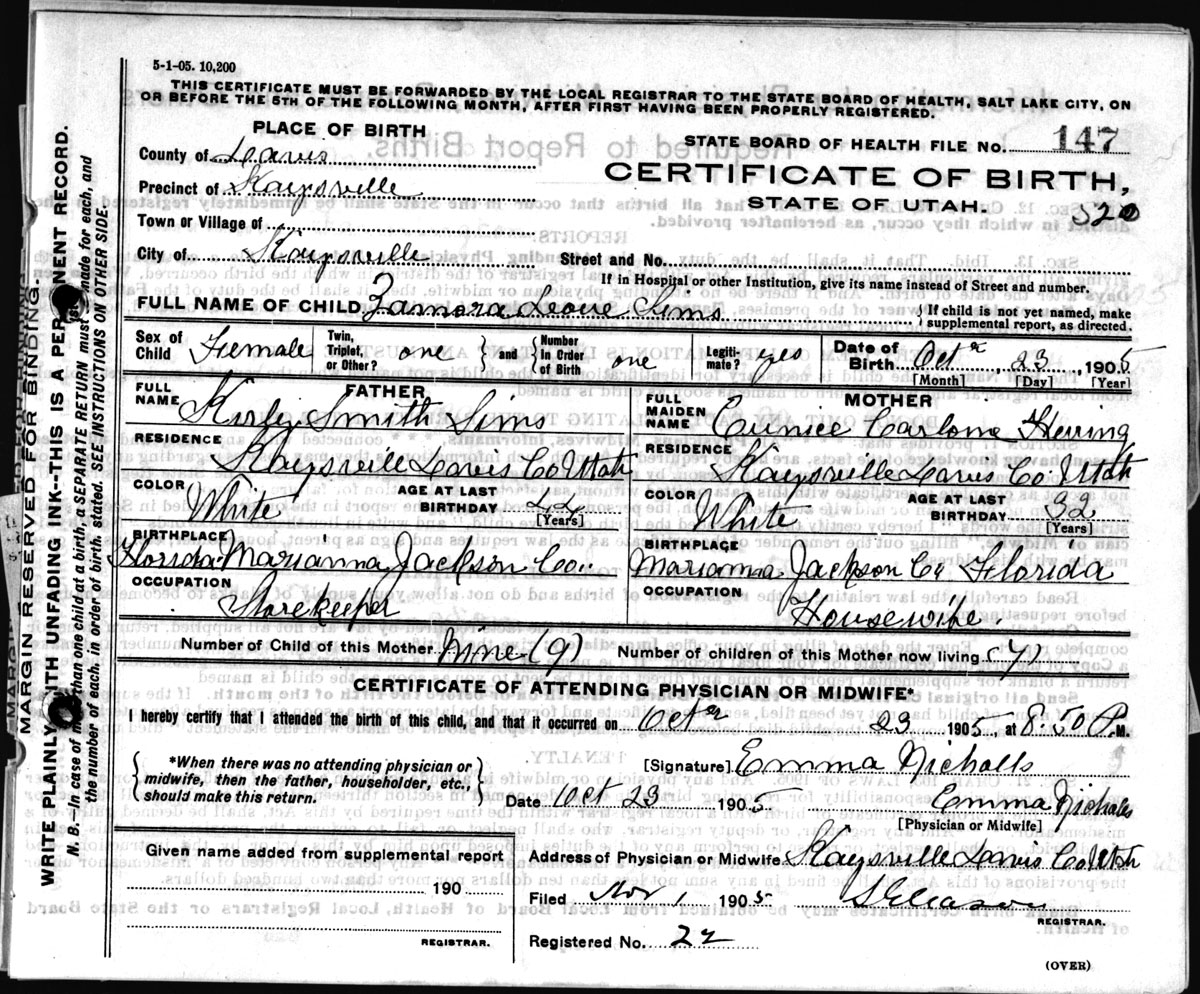 5-1-05. 10,200
THIS CERTIFICATE MUST BE FORWARDED BY THE LOCAL REGISTRAR TO THE STATE BOARD OF HEALTH, SALT LAKE CITY, ON
OR BEFORE THE 5TH OF THE FOLLOWING MONTH, AFTER FIRST HAVING BEEN PROPERLY REGISTERED.
PLACE OF BIRTH
County of Davis
Precinct of Kaysville
Town or Village of
City of Kaysville
STATE BOARD OF HEALTH FILE No. 147
CERTIFICATE OF BIRTH,
STATE OF UTAH.
520
Street and No.
If in Hospital or other Institution, give its name instead of Street and number.
FULL NAME OF CHILD Zamora Leone Sims
If child is not yet named, make
supplemental report, as directed.
Sex of Child Female
Twin, Triplet, or Other? one
and
Number In Order of Birth one
Legiti-mate? yes
Date of Birth Octr 23 1905
[Month] [Day] [Year]
FATHER
FULL NAME Kirby Smith Sims
RESIDENCE Kaysville Davis Co Utah
COLOR White
AGE AT LAST BIRTHDAY [Years]
BIRTHPLACE Florida Marianna Jackson Co.
OCCUPATION Storekeeper
MOTHER
FULL MAIDEN NAME Eunice Herring
RESIDENCE Kaysville Davis Co Utah
COLOR White
AGE AT LAST BIRTHDAY 32
[Years]
BIRTHPLACE Marianna Jackson Co Florida
OCCUPATION Housewife.
Number of Child of this Mother Nine (9)
Number of children of this Mother now living (7)
CERTIFICATE OF ATTENDING PHYSICIAN OR MIDWIFE*
I hereby certify that I attended the birth of this child, and that it occurred on Octr 23 1905, at 8:50 P.M.
*When there was no attending physician or
midwife, then the father, householder, etc.,
should make this return.
[Signature] Emma Nicholls
Date Oct 23 1905
Emma Nicholls
[Physician or Midwife]
Given name added from supplemental report
190
REGISTRAR.
Address of Physician or Midwife Kaysville Davis Co Utah
Filed Nov 1 1905
S Gleason
REGISTRAR.
Registered No. 22
(OVER)
MARGIN RESERVED FOR BINDING.
WRITE PLAINLY WITH UNFADING INK--THIS IS A PERMANENT RECORD.
N. B.--In case of more than one child at a birth, a SEPARATE RETURN must be made for each, and
the number of each, in order of birth, stated. SEE INSTRUCTIONS ON OTHER SIDE.